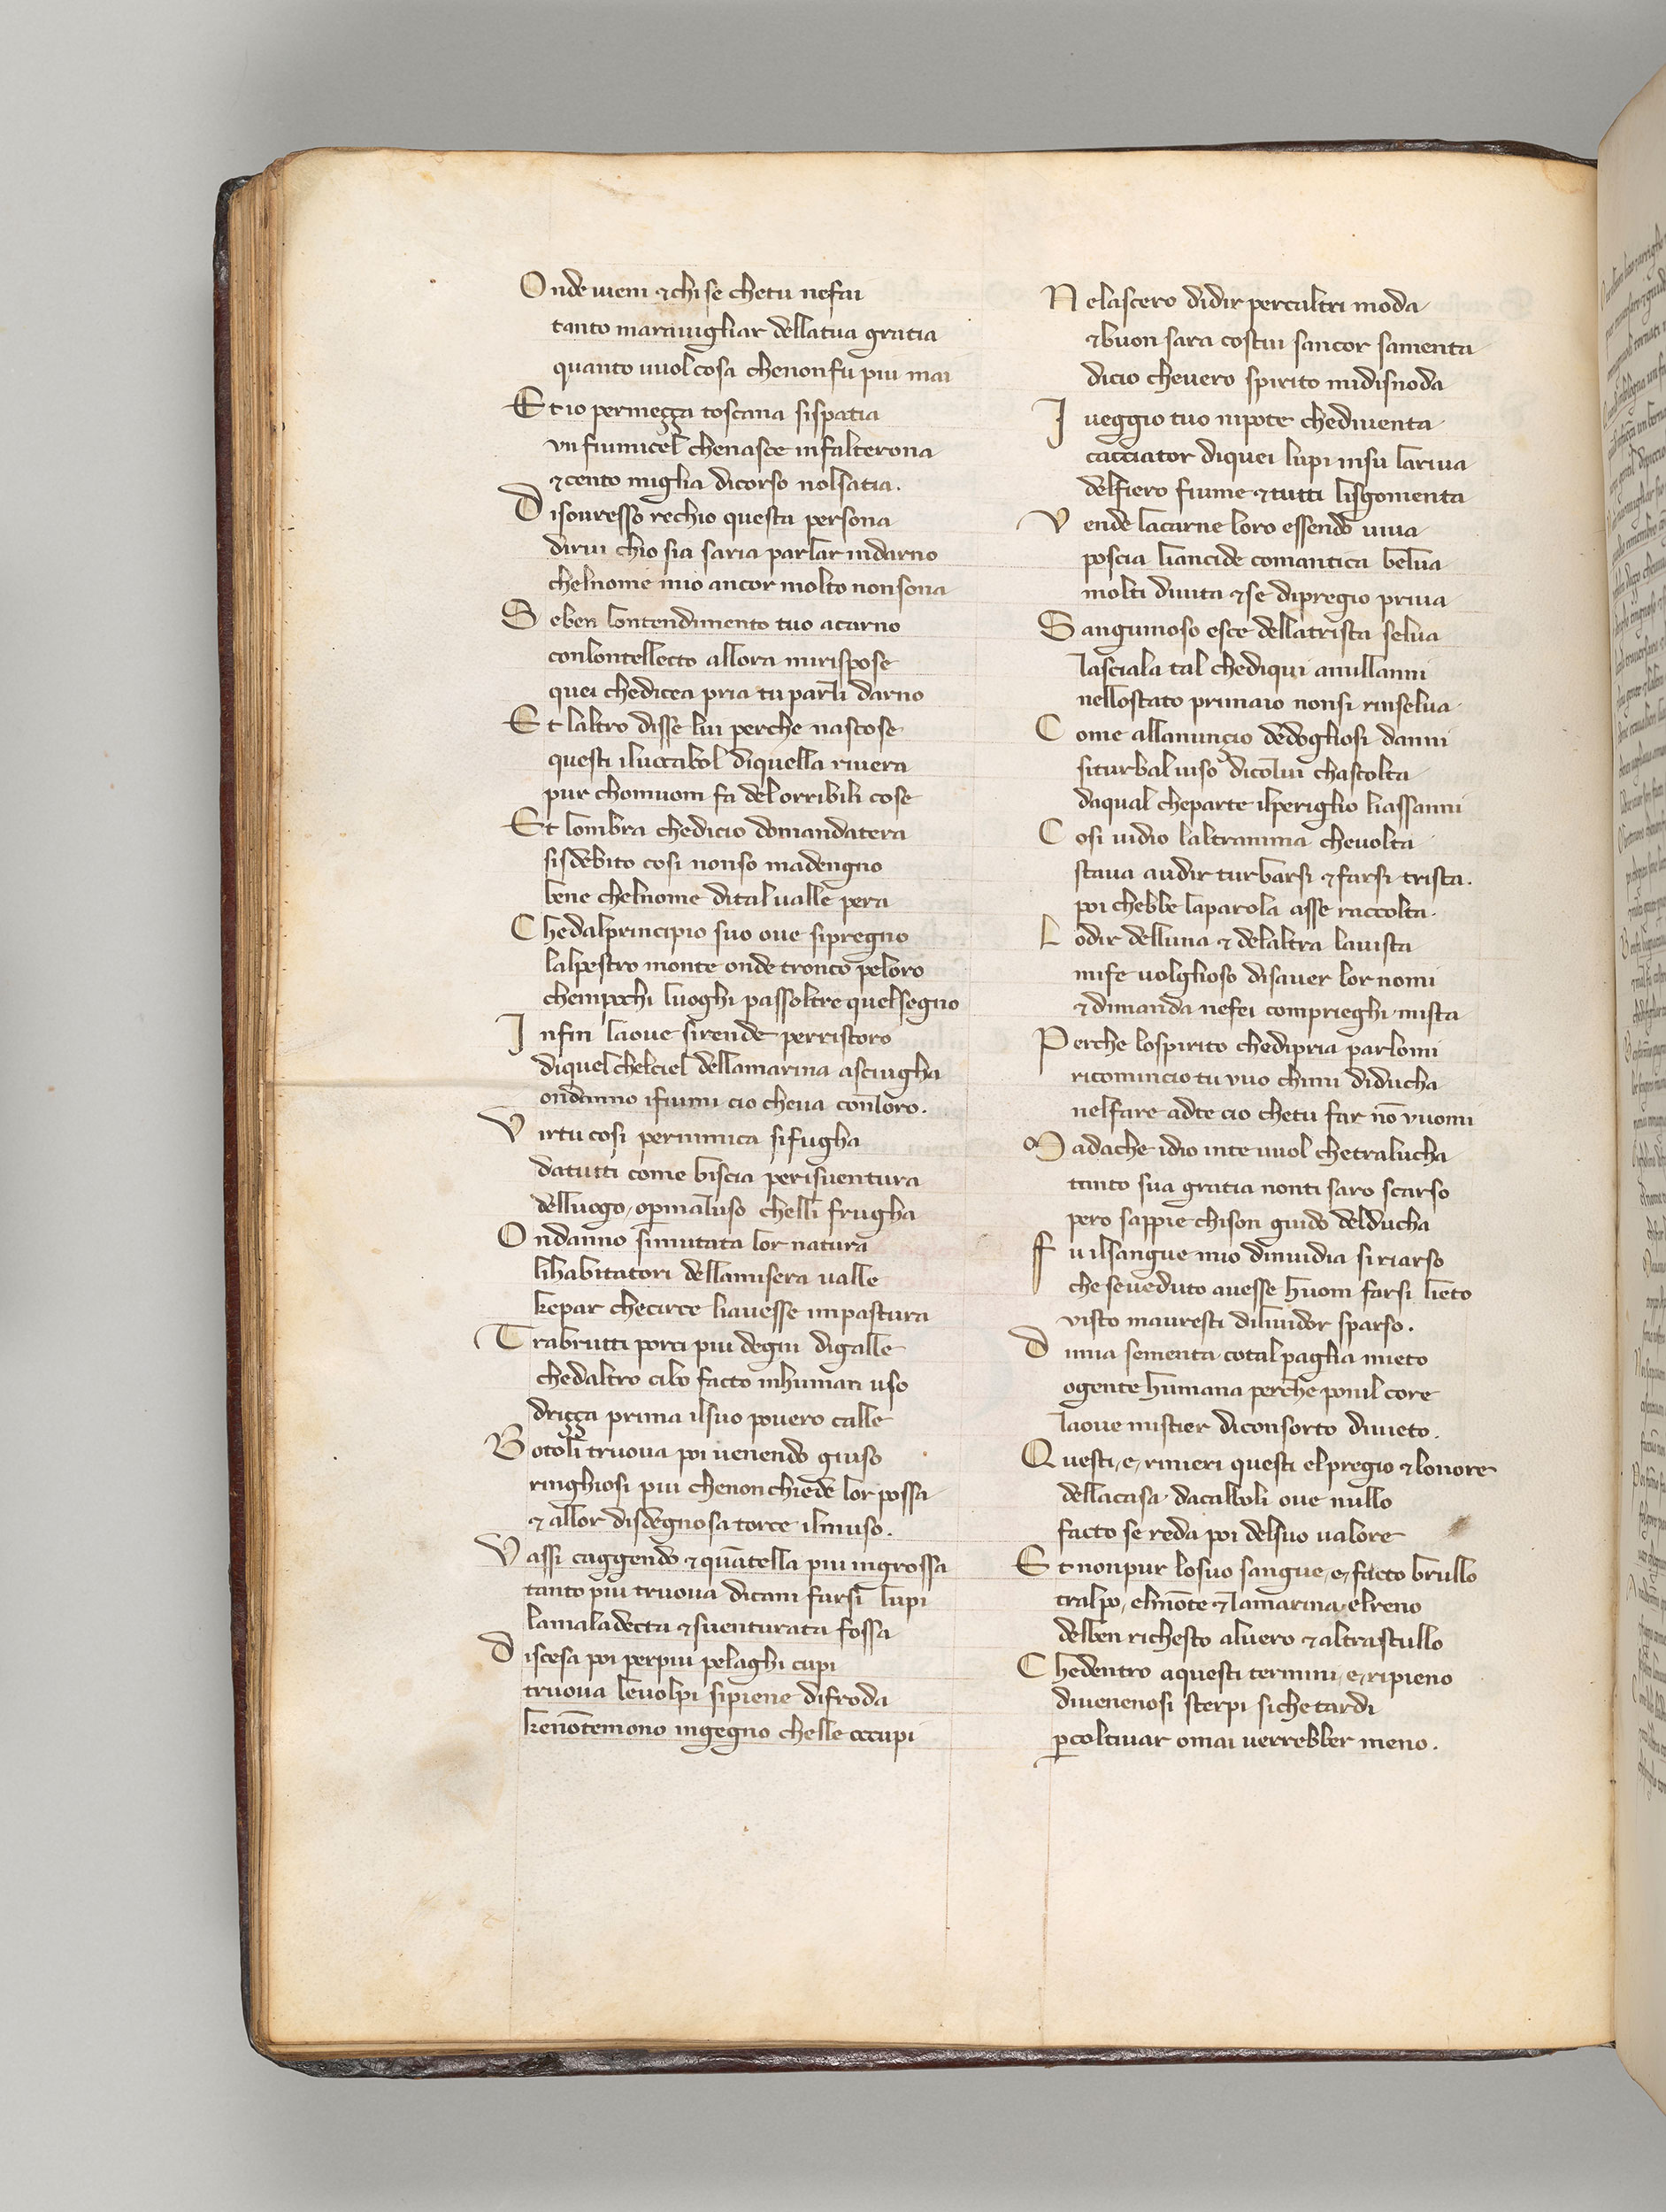 Onde vieni ⁊chi se chetu nefai
tanto marauigliar dellatua gratia
quanto vuol cosa chenonfu piu mai
Et io permeçça toscana sispatia
vn fiumicel chenasce infalterona
⁊cento miglia dicorso nolsatia.
Disouresso rechio questa persona
dirui chio sia saria parlar indarno
chelnome mio ancor molto nonsona
Se ben lontendimento tuo acarno
conlontellecto allora mirispose
quei chedicea pria tu parli darno
Et laltro disse lui perche nascose
questi iluocabol diquella riuera
pur chomuom fa del orribili cose
Et lombra chedicio domandatera
sisdebito cosi nonso madengno
bene chelnome dital ualle pera
Chedalprincipio suo oue sipregno
lalpestro monte onde tronco peloro
chempochi luoghi passoltre quelsegno
Infin laoue sirende perristoro
diquel chelciel dellamarina asciugha
ondanno ifiumi cio cheua conloro.
Virtu cosi pernimica sifugha
datutti come biscia perisuentura
delluogo, o permaluso chelli frugha
Ondanno simutata lor natura
lihabitatori dellamisera ualle
kepar checirce liauesse impastura
Trabrutti porci piu degni digalle
chedaltro cibo facto inhuman uso
driçça prima ilsuo pouero calle
Botoli truoua poi uenendo giuso
ringhiosi piu chenonchiede lor possa
⁊ allor disdegnosa torce ilmuso.
Vassi caggendo ⁊ quātella piu ingrossa
tanto piu truoua dicani farsi lupi
lamaladecta ⁊ suenturata fossa
Discesa poi perpiu pelaghi cupi
truoua leuolpi sipiene difroda
kenōtemono ingegno chelle occupi
Nelascero didir percaltri moda
⁊buon sara costui sancor samenta
dicio cheuero spirito midisnoda
I ueggio tuo nipote chediuenta
cacciator diquei lupi insu lariua
delfiero fiume ⁊tutti lisgomenta
Vende lacarne loro essendo uiua
poscia liancide comantica belua
molti diuita ⁊se dipregio priua
Sanguinoso esce dellatrista selua
lasciala tal chediqui amillanni
nellostato primaio nonsi rinselua
Come allanuncio dedogliosi danni
siturbal uiso dicolui chascolta
daqual cheparte ilperiglio liassanni
Cosi uidio laltranima cheuolta
staua audir turbarsi ⁊farsi trista.
poi chebbe laparola asse raccolta.
Lodir delluna ⁊ delaltra lauista
mife uolglioso disauer lor nomi
⁊dimanda nefei comprieghi mista
Perche lospirito chedipria parlomi
ricomincio tu vuo chimi diducha
nelfare adte cio chetu far nō vuomi
Madache idio inte vuol chetralucha
tanto sua gratia nonti saro scarso
pero sappie chison guido delducha
Fu ilsangue mio dinuidia si riarso
che seueduto auesse huom farsi lieto
visto mauresti diliuidor sparso.
Dimia sementa cotal paglia mieto
ogente humana perche ponil core
laoue mistier diconsorto diuieto.
Questi, e, rinieri questi elpregio ⁊lonore
dellacasa dacalboli oue nullo
facto se reda poi delsuo ualore
Et nonpur losuo sangue, e, facto brullo
tralpo, elmōte ⁊lamarina, elreno
delben richesto aluero ⁊altrastullo
Chedentro aquesti termini, e, ripieno
diuenenosi sterpi siche tardi
percoltiuar omai uerrebber meno.